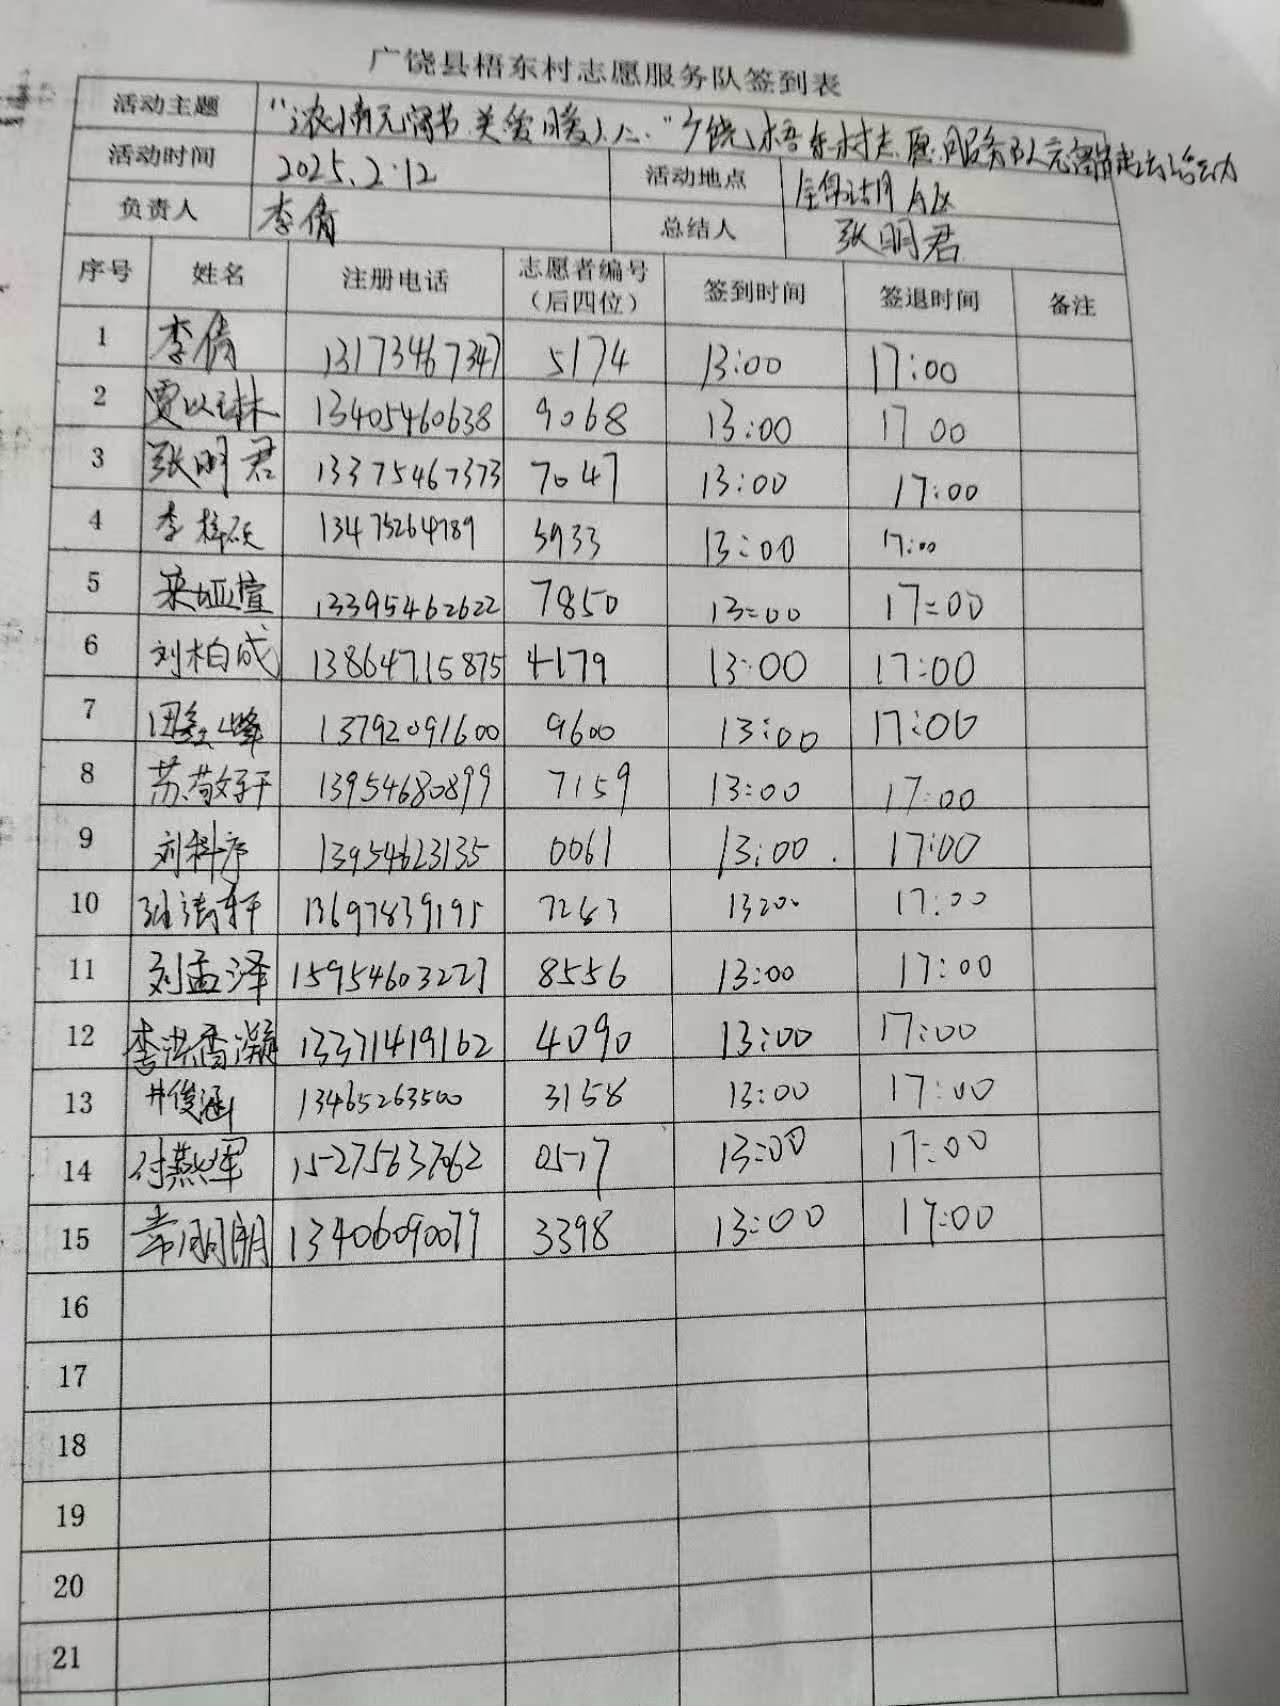 广饶县梧东村志愿服务队签到表
活动主题 "浓情元宵节 关爱暖人心"广饶县梧东村志愿服务队元宵节
活动时间 2025.2.12 活动地点 A区
负责人 李倩 总结人 张明君
序号 姓名 注册电话 志愿者编号（后四位） 签到时间 签退时间 备注
1 李倩 13173467347 5174 13:00 17:00
2 贾以琳 13405460638 9068 13:00 17 00
3 张明君 13375467373 7047 13:00 17:00
4 李梓硕 13475264789 5933 13:00 17:00
5 13395462622 7850 13:00 17:00
6 刘柏成 13864715875 4179 13:00 17:00
7 13792091600 9600 13:00 17:00
8 苏敬轩 13954680899 7159 13:00 17:00
9 刘科序 13954623135 0061 13:00 17:00
10 13697839195 7263 13:00 17:00
11 刘孟泽 15954603227 8556 13:00 17:00
12 李洪香凝 13371419162 4090 13:00 17:00
13 井俊涵 13465263500 3158 13:00 17:00
14 付燕军 15275637062 0517 13:00 17:00
15 常明朗 13406090077 3398 13:00 17:00
16
17
18
19
20
21